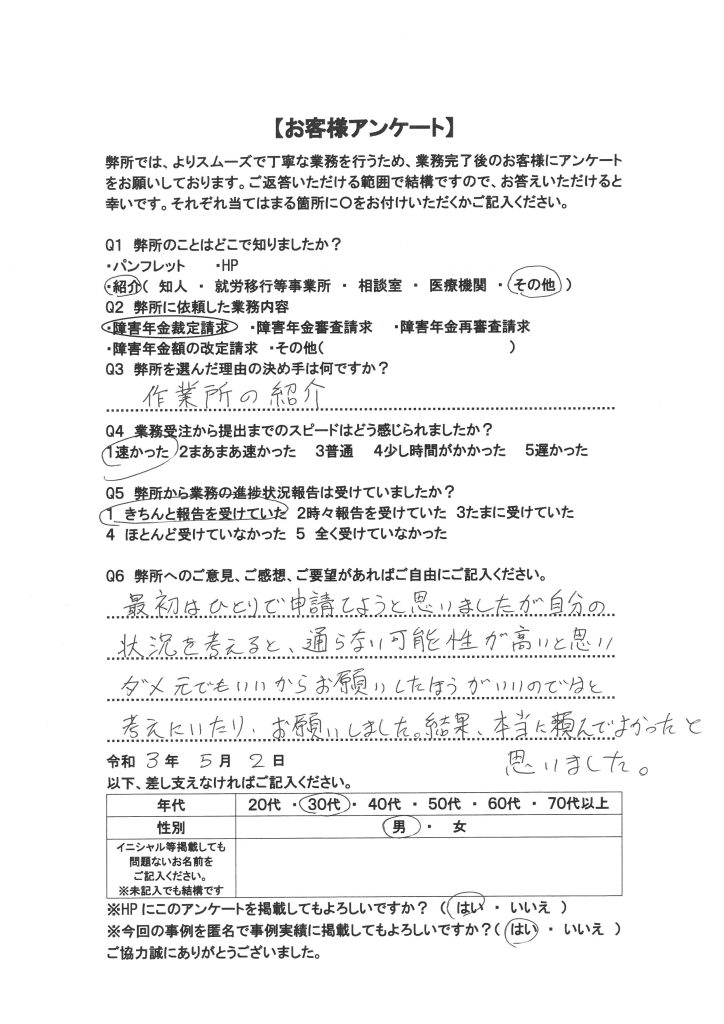 【お客様アンケート】
弊所では、よりスムーズで丁寧な業務を行うため、業務完了後のお客様にアンケート
をお願いしております。ご返答いただける範囲で結構ですので、お答えいただけると
幸いです。それぞれ当てはまる箇所に〇をお付けいただくかご記入ください。
Q1 弊所のことはどこで知りましたか？
・パンフレット ・HP
・紹介( 知人 ・ 就労移行等事業所 ・ 相談室 ・ 医療機関 ・ その他 )
Q2 弊所に依頼した業務内容
・障害年金裁定請求 ・障害年金審査請求 ・障害年金再審査請求
・障害年金額の改定請求 ・その他( )
Q3 弊所を選んだ理由の決め手は何ですか？
作業所の紹介
Q4 業務受注から提出までのスピードはどう感じられましたか？
1速かった 2まあまあ速かった 3普通 4少し時間がかかった 5遅かった
Q5 弊所から業務の進捗状況報告は受けていましたか？
1 きちんと報告を受けていた 2時々報告を受けていた 3たまに受けていた
4 ほとんど受けていなかった 5 全く受けていなかった
Q6 弊所へのご意見、ご感想、ご要望があればご自由にご記入ください。
最初はひとりで申請てようと思いましたが自分の
状況を考えると、通らない可能性が高いと思い
ダメ元でもいいからお願いしたほうがいいのではと
考えにいたり、お願いしました。結果、本当に頼んでよかったと
思いました。
令和 3年 5月 2日
以下、差し支えなければご記入ください。
年代 20代 ・ 30代 ・ 40代 ・ 50代 ・ 60代 ・ 70代以上
性別 男 ・ 女
イニシャル等掲載しても
問題ないお名前を
ご記入ください。
※未記入でも結構です
※HPにこのアンケートを掲載してもよろしいですか？ ( はい ・ いいえ )
※今回の事例を匿名で事例実績に掲載してもよろしいですか？( はい ・ いいえ )
ご協力誠にありがとうございました。